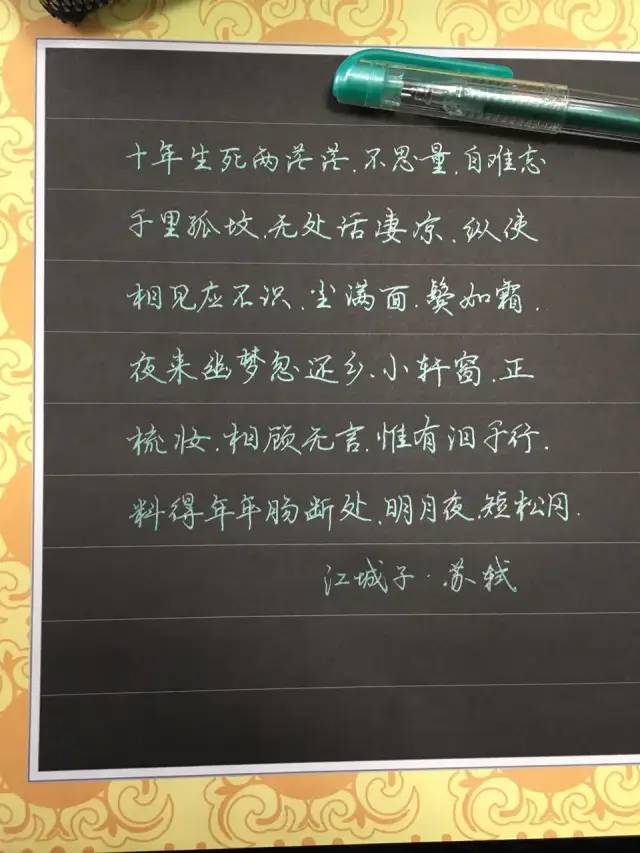 十年生死两茫茫.不思量.自难忘
千里孤坟.无处话凄凉.纵使
相见应不识.尘满面.鬓如霜.
夜来幽梦忽还乡.小轩窗.正
梳妆.相顾无言.惟有泪千行.
料得年年肠断处.明月夜.短松冈.
江城子·苏轼